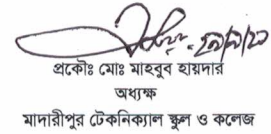 প্রকৌঃ মোঃ মাহবুব হায়দার
অধ্যক্ষ
মাদারীপুর টেকনিক্যাল স্কুল ও কলেজ